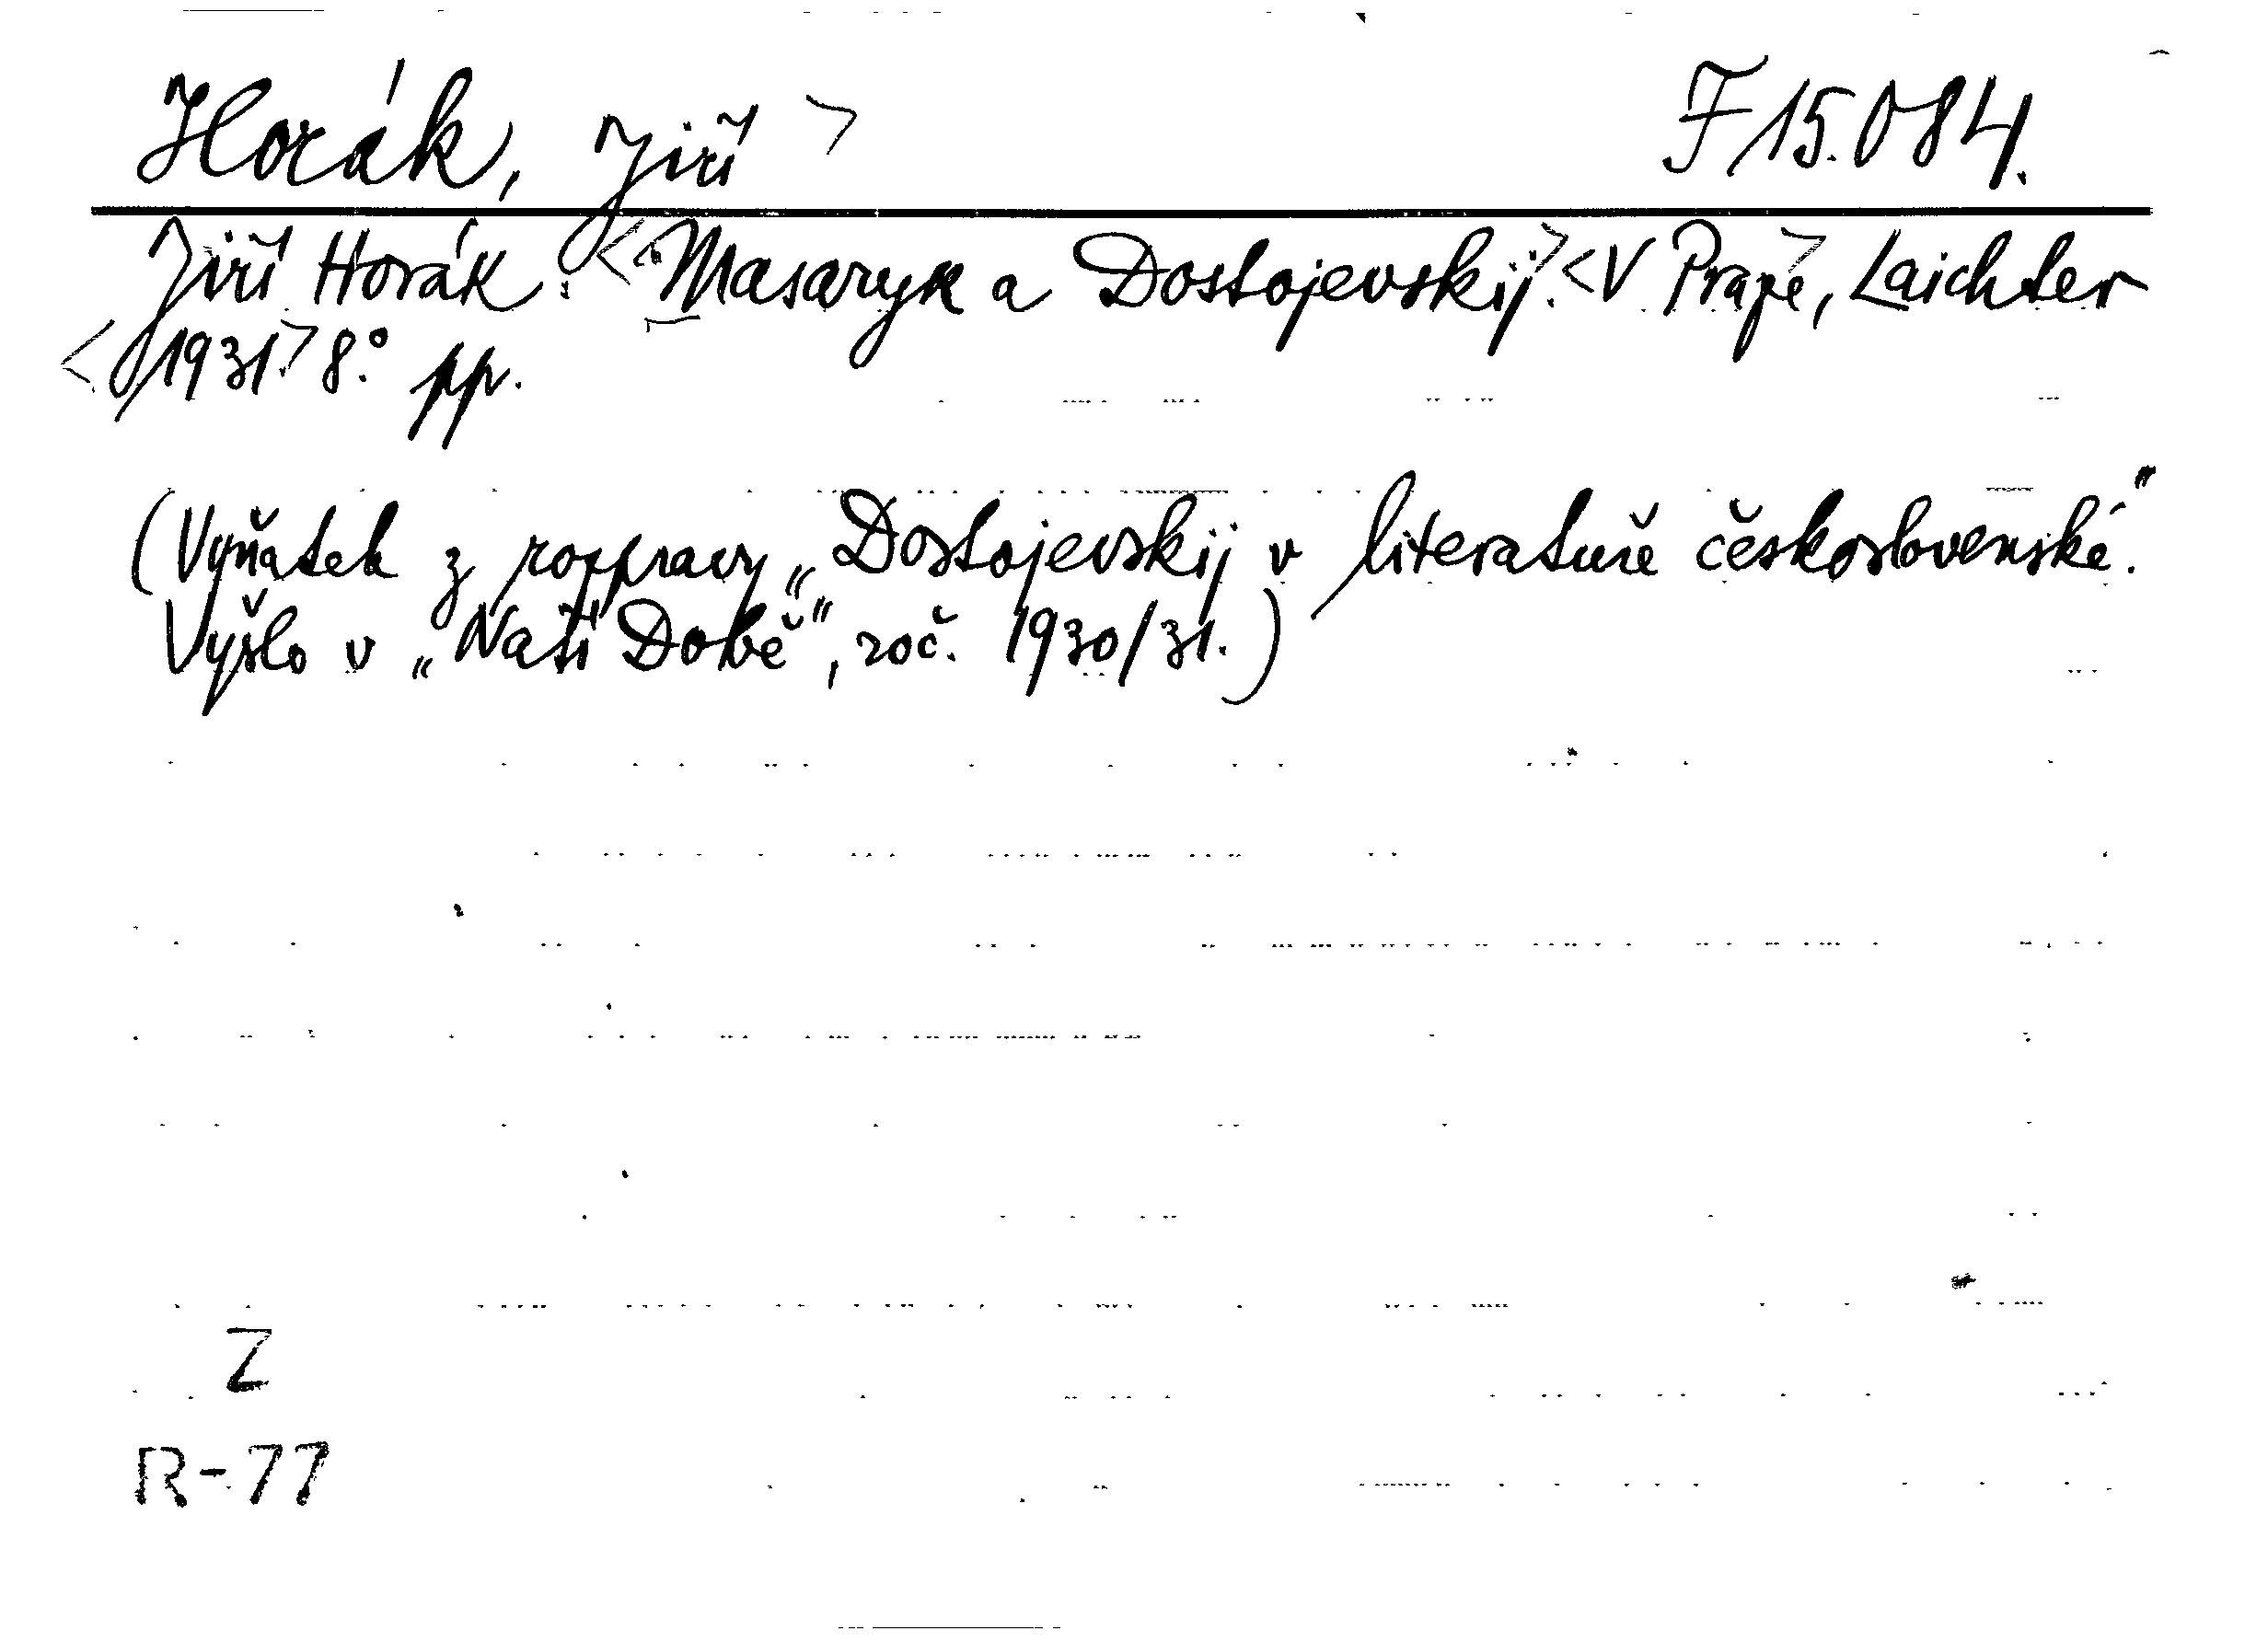 Horák, Jiří > F 15.084.
Jiří Horák: < Masaryk a Dostojevskij. > < V Praze, > Laichter
< 1931 > 8.° pp.
(Vyňatek z rozpravy „Dostojevskij v literatuře československé.“
Vyšlo v „Naší Době“, roč. 1930/31.)
Z
R-77